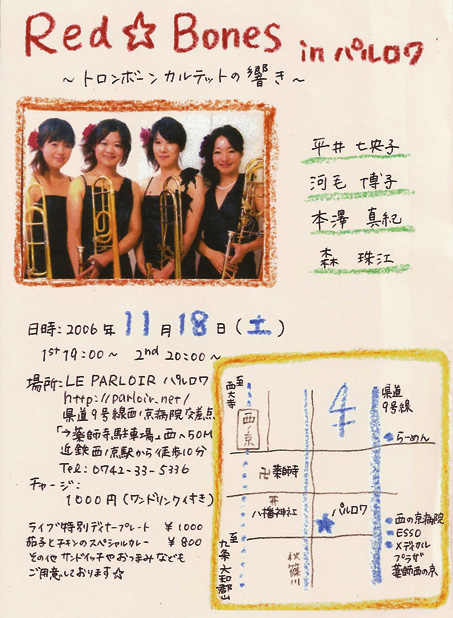 Red☆Bones in パルロワ
～トロンボーンカルテットの響き～
平井 七央子
河毛 博子
本澤 真紀
森 珠江
日時：2006年 11月 18日（土）
1st 19:00～ 2nd 20:00～
場所：LE PARLOIR パルロワ
http://parloir.net/
県道9号線西ノ京病院交差点
「→薬師寺駐車場」西へ50M
近鉄西ノ京駅から徒歩10分
Tel: 0742-33-5336
チャージ：
1000円（ワンドリンク付き）
ライブ特別ディナープレート ¥1000
茄子とチキンのスペシャルカレー ¥800
その他 サンドイッチやおつまみなども
ご用意しております☆
至
西大寺
西ノ京
県道
9号線
らーめん
卍薬師寺
八幡神社
パルロワ
秋篠川
西の京病院
ESSO
メディカル
プラザ
薬師西の京
至
九条 大和郡山